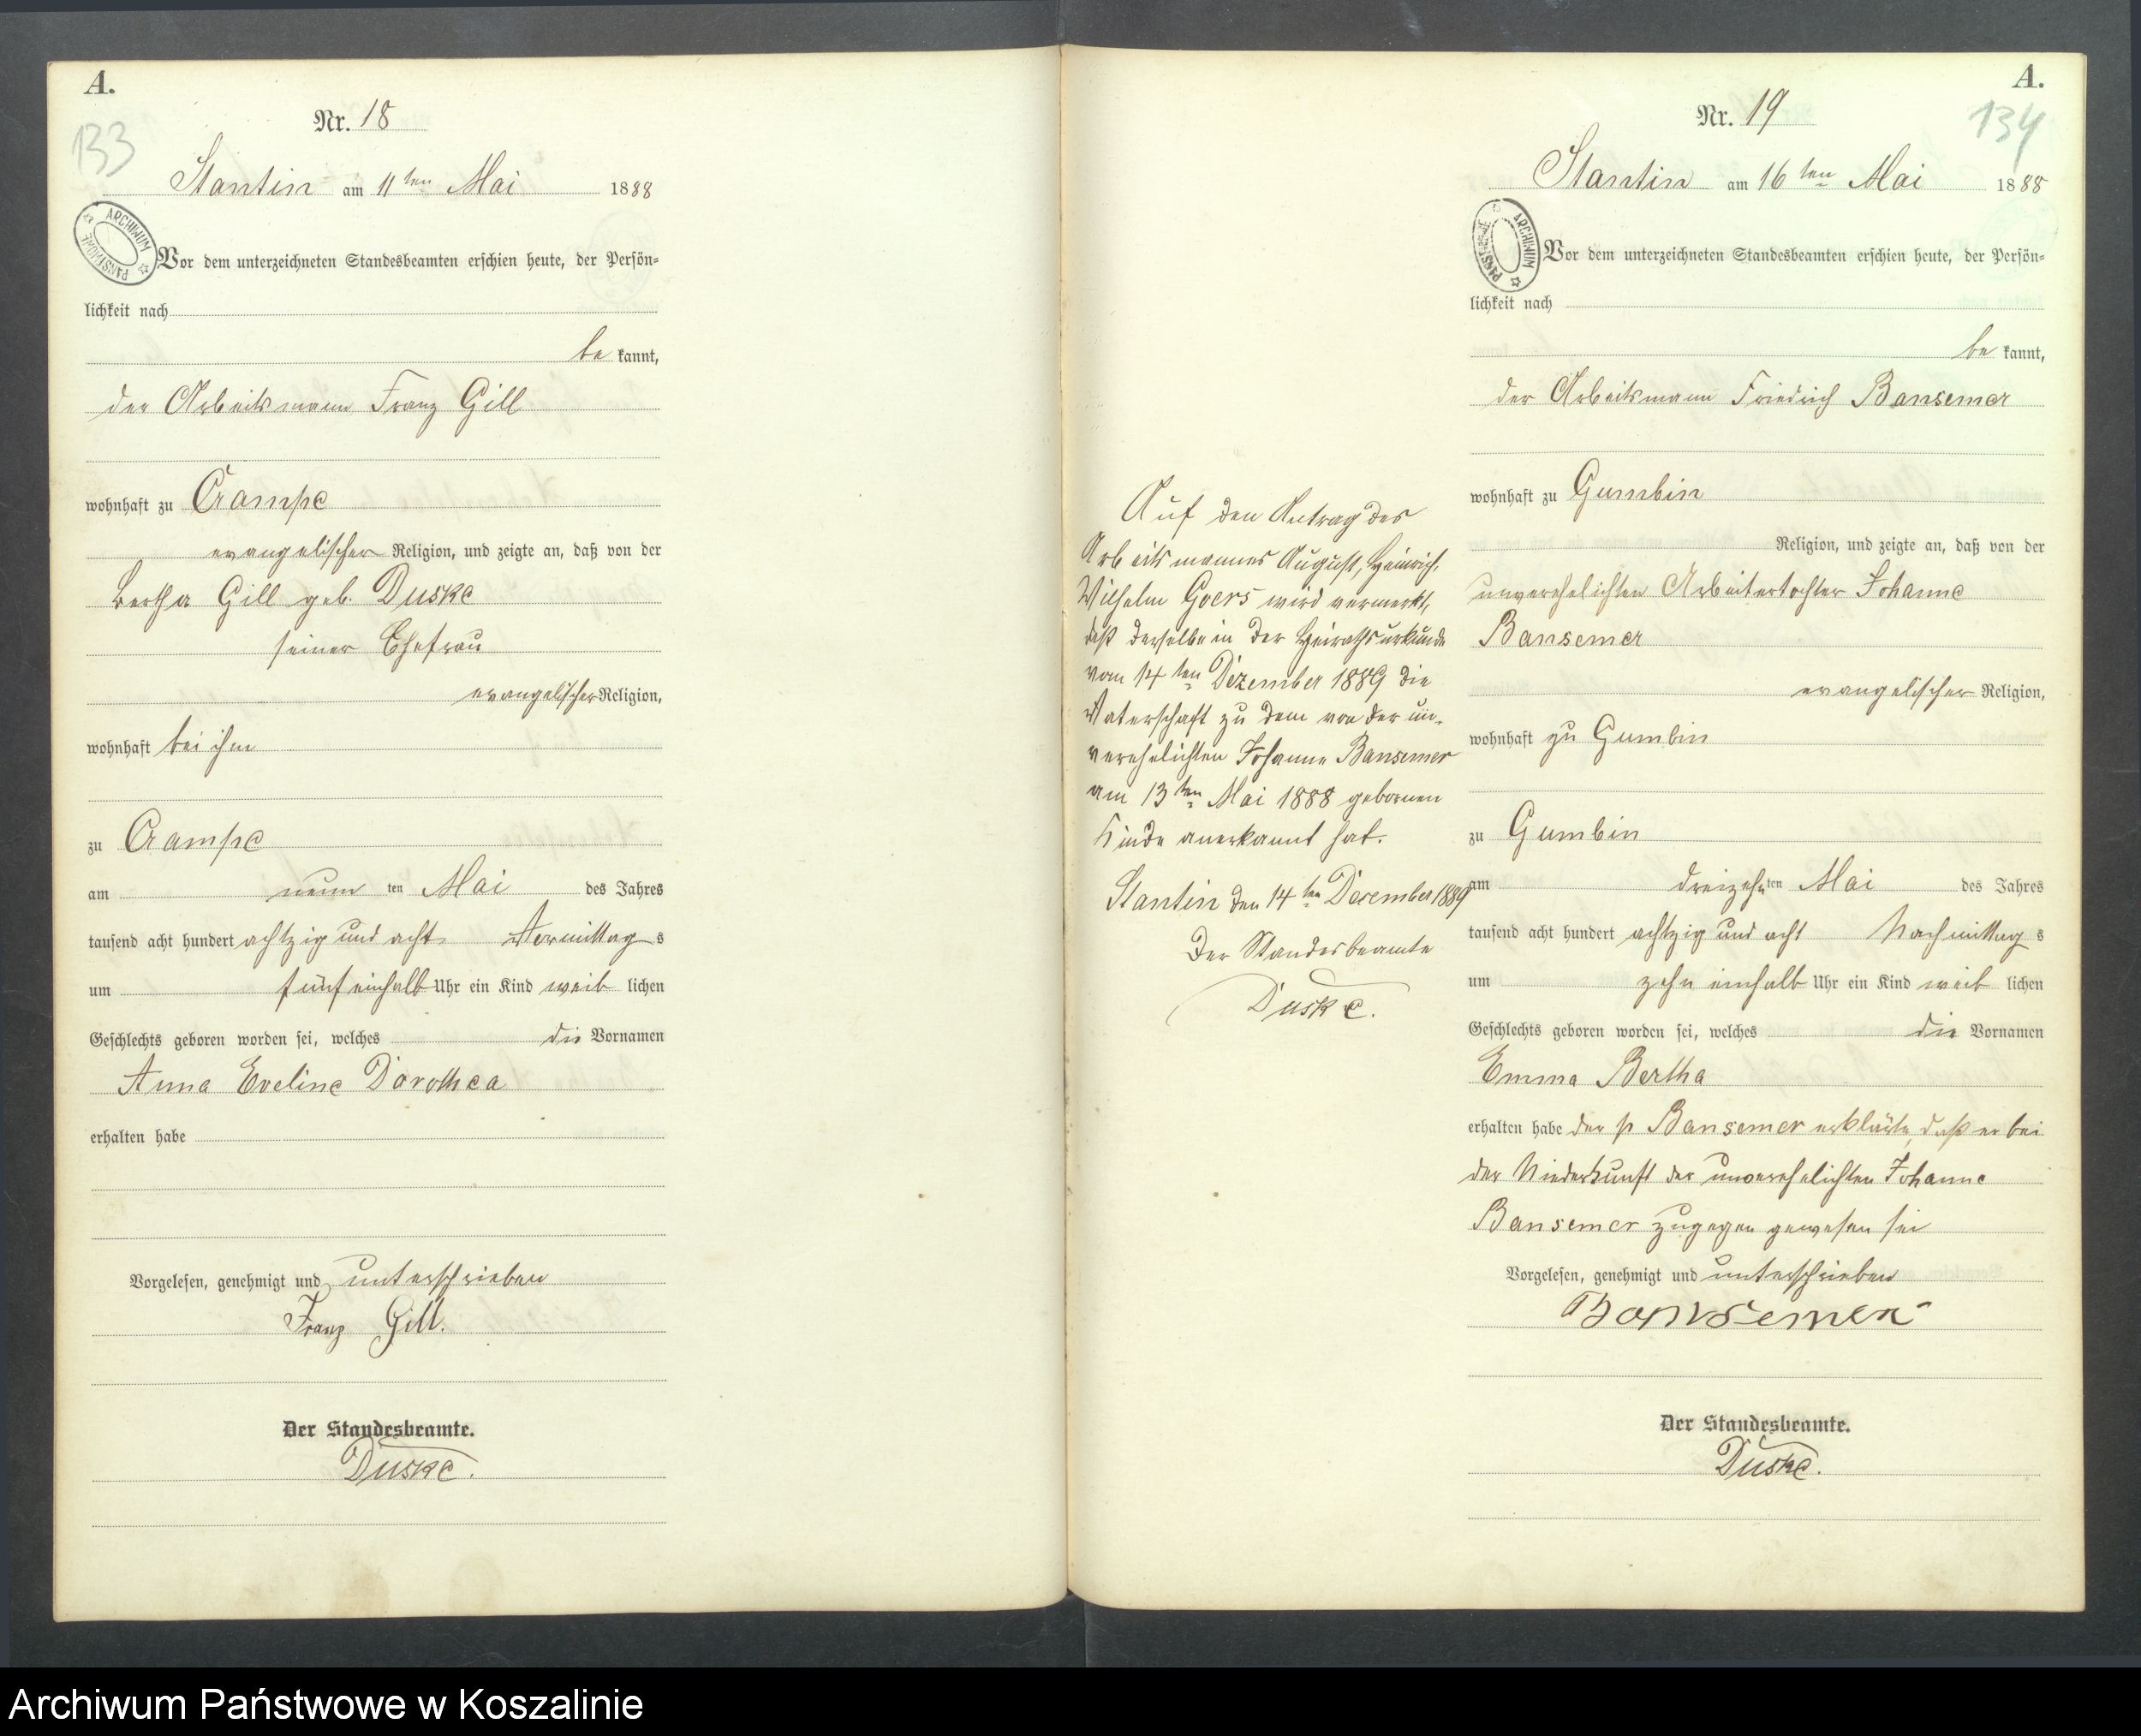 A.
133
Nr. 18
Stantin am 11ten Mai 1888
ARCHIWUM PAŃSTWOWE
Vor dem unterzeichneten Standesbeamten erschien heute, der Persön-
lichkeit nach
be kannt,
der Arbeitsmann Franz Gill
wohnhaft zu Crampe
evangelischer Religion, und zeigte an, daß von der
Bertha Gill geb. Duske
seiner Ehefrau
evangelischer Religion,
wohnhaft bei ihm
zu Crampe
am neun ten Mai des Jahres
tausend acht hundert achtzig und acht Vormittag s
um fünf einhalb Uhr ein Kind weib lichen
Geschlechts geboren worden sei, welches die Vornamen
Anna Eveline Dorothea
erhalten habe
Vorgelesen, genehmigt und unterschrieben
Franz Gill.
Der Standesbeamte.
Duske.
Auf den Antrag des
Arbeitsmannes August, Heinrich,
Wilhelm Goers wird vermerkt,
daß derselbe in der Heirathsurkunde
vom 14ten Dezember 1889 die
Vaterschaft zu dem von der un-
verehelichten Johanne Bansemer
am 13ten Mai 1888 gebornen
Kinde anerkannt hat.
Stantin den 14ten December 1889
Der Standesbeamte
Duske.
A.
134
Nr. 19
Stantin am 16ten Mai 1888
ARCHIWUM PAŃSTWOWE
Vor dem unterzeichneten Standesbeamten erschien heute, der Persön-
lichkeit nach
be kannt,
der Arbeitsmann Friedrich Bansemer
wohnhaft zu Gumbin
Religion, und zeigte an, daß von der
unverehelichten Arbeitertochter Johanne
Bansemer
evangelischer Religion,
wohnhaft zu Gumbin
zu Gumbin
am dreizehn ten Mai des Jahres
tausend acht hundert achtzig und acht Nachmittag s
um zehn einhalb Uhr ein Kind weib lichen
Geschlechts geboren worden sei, welches die Vornamen
Emma Bertha
erhalten habe der p Bansemer erklärte, daß er bei
der Niederkunft der unverehelichten Johanne
Bansemer zugegen gewesen sei
Vorgelesen, genehmigt und unterschrieben
Bansemer
Der Standesbeamte.
Duske.
Archiwum Państwowe w Koszalinie